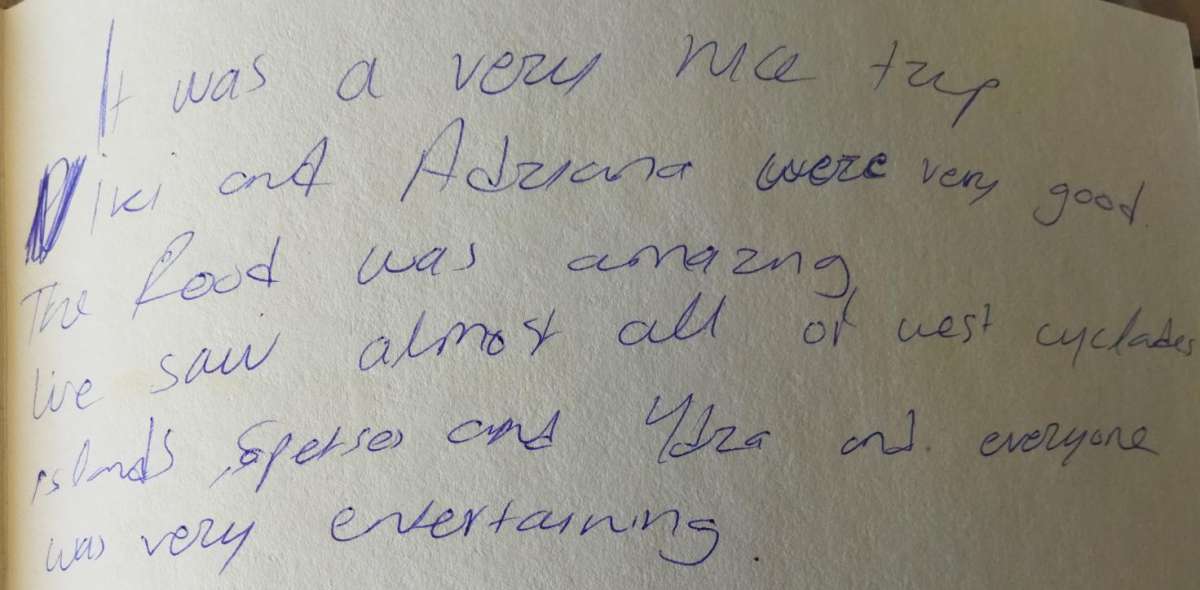 It was a very nice trip
Niki and Adriana were very good.
The food was amazing
We saw almost all of west cyclades
islands, Spetses and Ydra and everyone
was very entertaining.